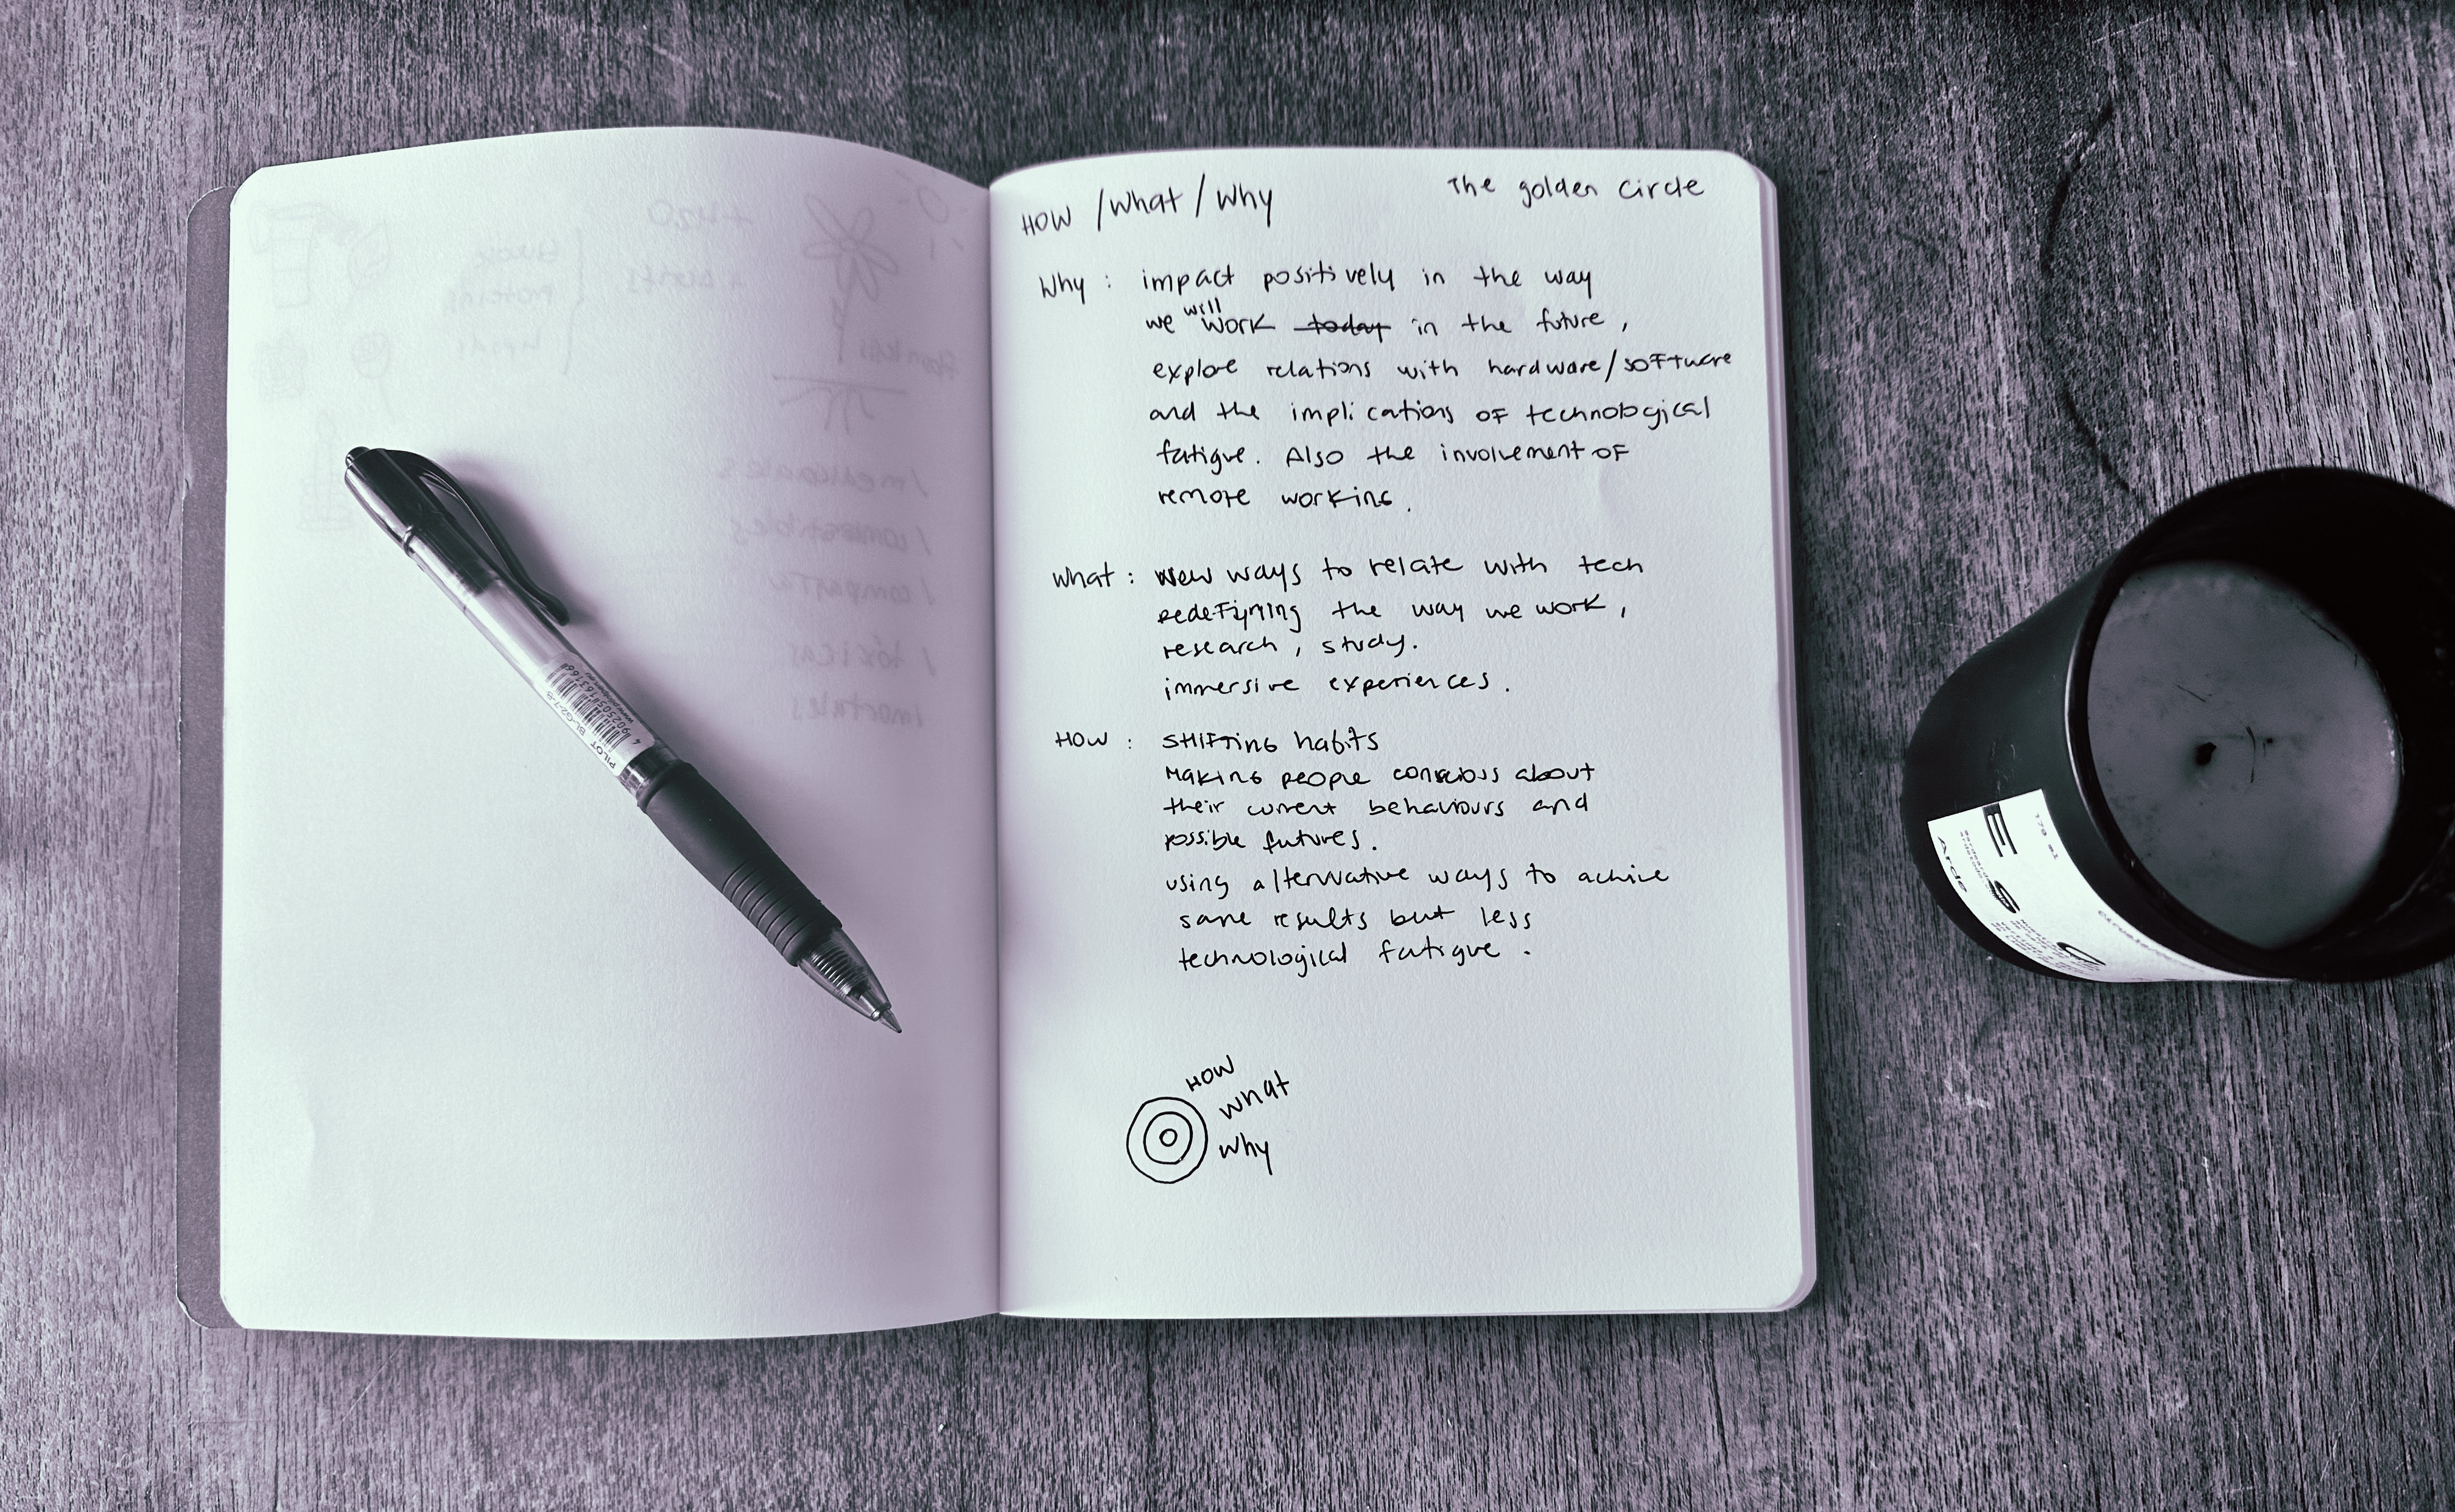 HOW / What / Why
The golden circle
Why : impact positively in the way
we will work today in the future,
explore relations with hardware/software
and the implications of technological
fatigue. Also the involvement of
remote working.
What : New ways to relate with tech
redefining the way we work,
research, study.
immersive experiences.
HOW : Shifting habits
Making people conscious about
their current behaviours and
possible futures.
using alternative ways to achive
same results but less
technological fatigue.
HOW
What
Why
PILOT BL-G2-7-B